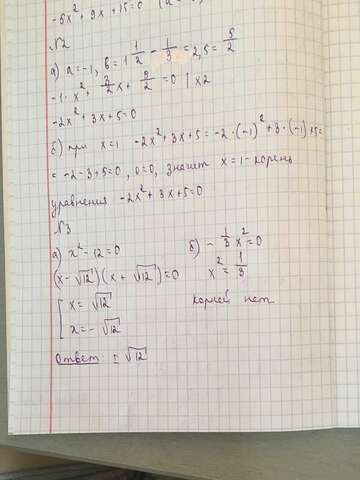 -6x² + 9x + 15 = 0
№2
а) a = -1, b = 1 1/2 - 1/3 = 2,5 = 5/2
-1·x² + 3/2 x + 5/2 = 0 | ×2
-2x² + 3x + 5 = 0
б) при x = 1 -2x² + 3x + 5 = -2·(-1)² + 3·(-1) + 5 =
= -2 - 3 + 5 = 0, 0 = 0, значит x = 1 - корень
уравнения -2x² + 3x + 5 = 0
№3
а) x² - 12 = 0
(x - √12)(x + √12) = 0
x = √12
x = -√12
Ответ: ± √12
б) - 1/3 x² = 0
x² = 1/3
корней нет